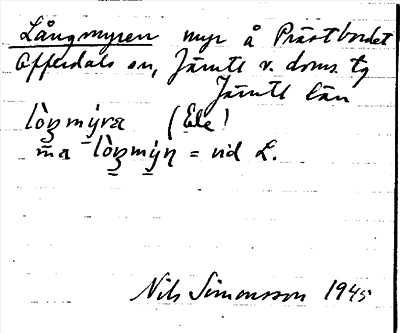 Långmyren myr å Prästbordet
Offerdals sn, Jämtl v. doms. tg
Jämtl län
lòŋmýra (Ele!
m̄a lòŋmýn = vid L.
Nils Simonsson 1945